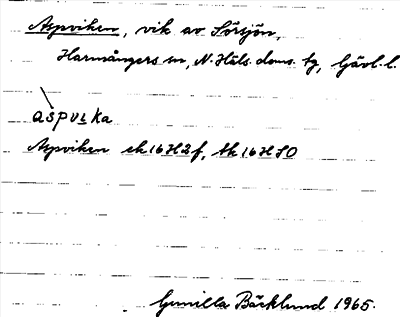 Aspviken, vik av Sörsjön,
Harmångers sn, N. Häls. doms. tg, Gävl. l.
àspvɩka
Aspviken ek 16H2f, tk 16HSO
Gunilla Bäcklund 1965.